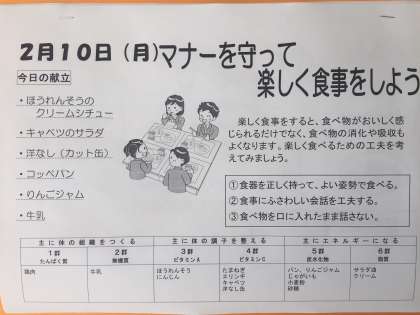 2月10日（月）マナーを守って
楽しく食事をしよう
今日の献立
・ほうれんそうの
クリームシチュー
・キャベツのサラダ
・洋なし（カット缶）
・コッペパン
・りんごジャム
・牛乳
楽しく食事をすると、食べ物がおいしく感
じられるだけでなく、食べ物の消化や吸収も
よくなります。楽しく食べるための工夫を考
えてみましょう。
①食器を正しく持って、よい姿勢で食べる。
②食事にふさわしい会話を工夫する。
③食べ物を口に入れたまま話さない。
主に体の組織をつくる
主に体の調子を整える
主にエネルギーになる
1群
たんぱく質
2群
無機質
3群
ビタミンA
4群
ビタミンC
5群
炭水化物
6群
脂質
鶏肉
牛乳
ほうれんそう
にんじん
たまねぎ
エリンギ
キャベツ
洋なし缶
パン、りんごジャム
じゃがいも
小麦粉
砂糖
サラダ油
クリーム